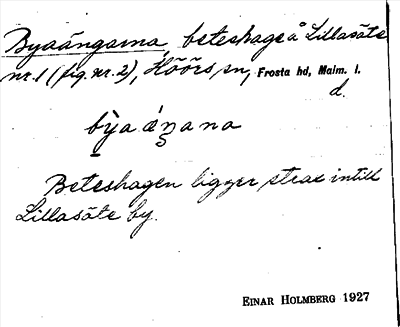 Byaängarna, beteshage å Lillasäte
nr. 1 (fig. nr. 2), Höörs sn, Frosta hd, Malm. l.
d.
bỳa áŋana
Beteshagen ligger strax intill
Lillasäte by.
EINAR HOLMBERG 1927